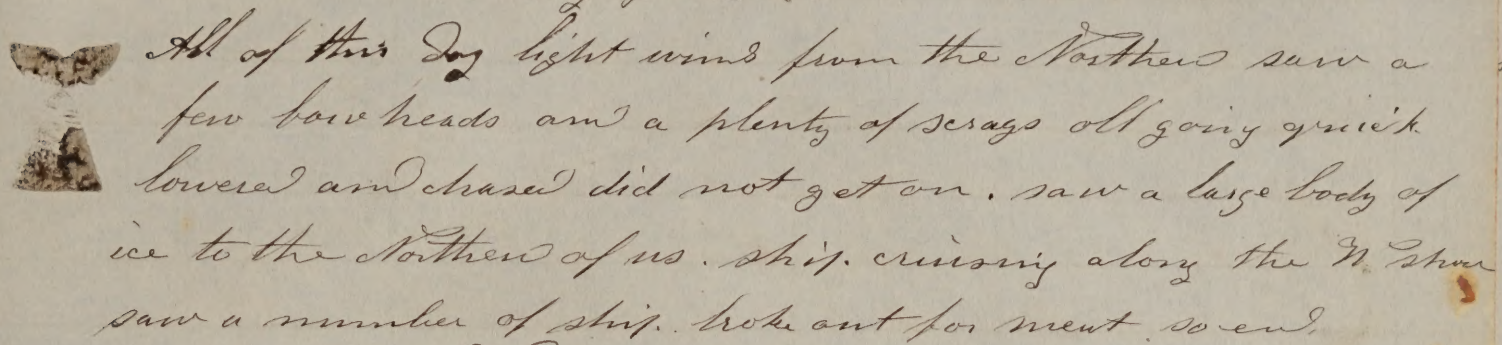 All of this Day light winds from the Northerd saw a
few bowheads and a plenty of scrags all going quick
lowered and chased did not get on. saw a large body of
ice to the Northerd of us. ship cruising along the N Shore
saw a number of ship. broke out for meat so ends.